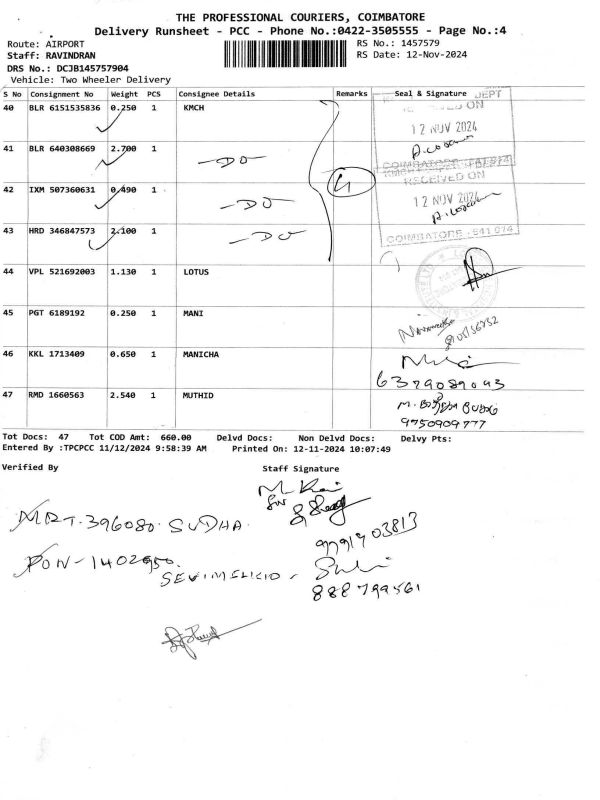 THE PROFESSIONAL COURIERS, COIMBATORE
Delivery Runsheet - PCC - Phone No.:0422-3505555 - Page No.:4
Route: AIRPORT
RS No.: 1457579
Staff: RAVINDRAN
RS Date: 12-Nov-2024
DRS No.: DCJB145757904
Vehicle: Two Wheeler Delivery
S No Consignment No Weight PCS Consignee Details Remarks Seal & Signature
40 BLR 6151535836 0.250 1 KMCH
DEPT
12 NOV 2024
41 BLR 640308669 2.700 1 -DO-
COIMBATORE - 641 014
RECEIVED ON
42 IXM 507360631 0.490 1 -DO- 4
12 NOV 2024
43 HRD 346847573 2.100 1 -DO-
COIMBATORE - 641 014
44 VPL 521692003 1.130 1 LOTUS
45 PGT 6189192 0.250 1 MANI
46 KKL 1713409 0.650 1 MANICHA
6379089093
47 RMD 1660563 2.540 1 MUTHID
9750909777
Tot Docs: 47 Tot COD Amt: 660.00 Delvd Docs: Non Delvd Docs: Delvy Pts:
Entered By :TPCPCC 11/12/2024 9:58:39 AM Printed On: 12-11-2024 10:07:49
Verified By Staff Signature
MDT-396080. SUDHA
9791703813
PON-1402950.
888799561